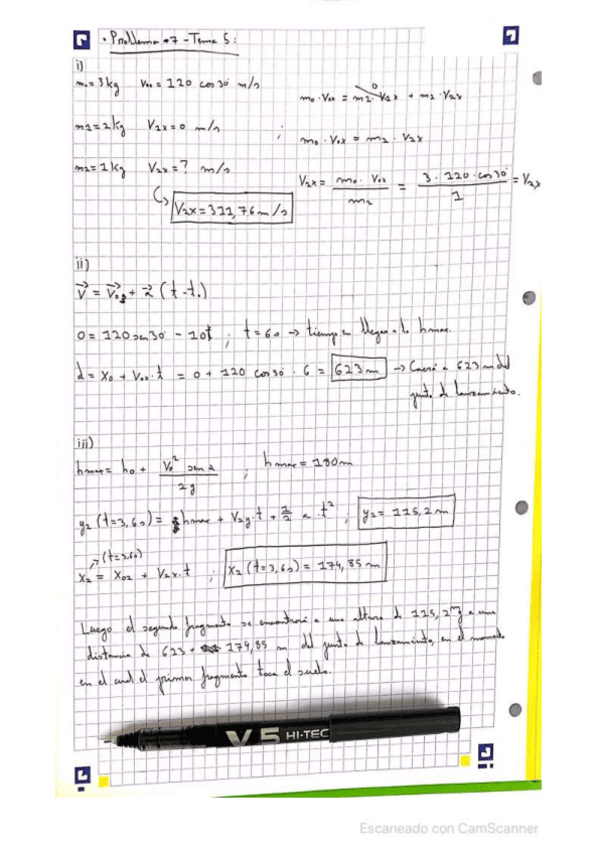 · Problema 7 - Tema 5:
i)
m₀ = 3 kg   V₀ₓ = 120 cos 30° m/s
m₀ · V₀ₓ = m₁ · V₁ₓ + m₂ · V₂ₓ
0
m1 = 2 kg   V₁ₓ = 0 m/s   ;   m₀ · V₀ₓ = m₂ · V₂ₓ
m₂ = 1 kg   V₂ₓ = ? m/s
V₂ₓ = m₀ · V₀ₓ / m₂ = 3 · 120 · cos 30° / 1 = V₂ₓ
V₂ₓ = 311,76 m/s
ii)
V = V₀ + a (t - t₀)
0 = 120 sen 30° - 10t ; t = 6 s → tiempo en llegar a la hmax.
d = x₀ + V₀ₓ · t = 0 + 120 cos 30° · 6 = 623 m → Caerá a 623 m del
punto de lanzamiento.
iii)
hmax = h₀ + V₀² sen a / 2g ; hmax = 180 m
y₂ (t = 3,6 s) = hmax + V₂y · t + 1/2 a · t² ; y₂ = 115,2 m
(t = 3,6 s)
x₂ = x₀₂ + V₂ₓ · t ; x₂ (t = 3,6 s) = 174,85 m
Luego el segundo fragmento se encontrará a una altura de 115,2 m y a una
distancia de 623 + 174,85 m del punto de lanzamiento, en el momento
en el cual el primer fragmento toca el suelo.
V5 HI-TEC
Escaneado con CamScanner